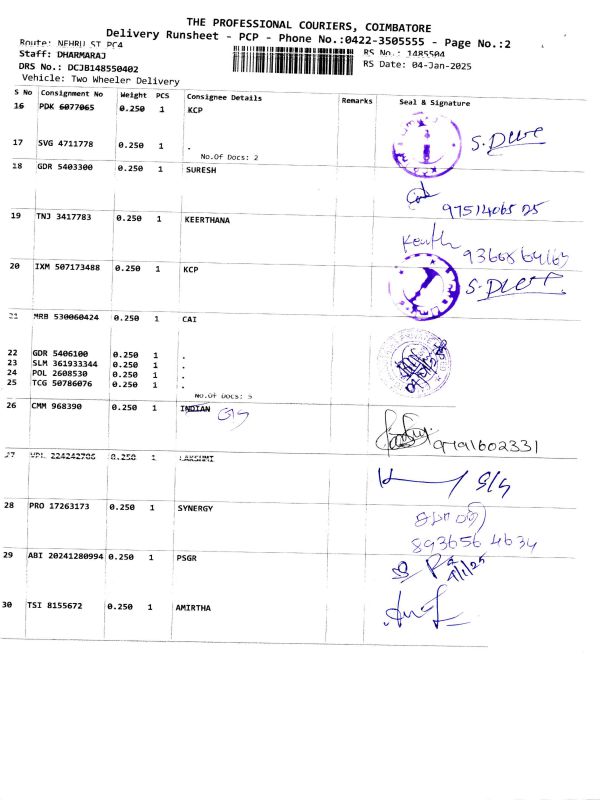 THE PROFESSIONAL COURIERS, COIMBATORE
Delivery Runsheet - PCP - Phone No.:0422-3505555 - Page No.:2
Route: NEHRU ST PC4
RS No.: 1485504
Staff: DHARMARAJ
RS Date: 04-Jan-2025
DRS No.: DCJB148550402
Vehicle: Two Wheeler Delivery
S No Consignment No Weight PCS Consignee Details Remarks Seal & Signature
16 PDK 6077065 0.250 1 KCP
17 SVG 4711778 0.250 1 .
No.Of Docs: 2
18 GDR 5403300 0.250 1 SURESH
19 TNJ 3417783 0.250 1 KEERTHANA
20 IXM 507173488 0.250 1 KCP
21 MRB 530060424 0.250 1 CAI
22 GDR 5406100 0.250 1 .
23 SLM 361933344 0.250 1 .
24 POL 2608530 0.250 1 .
25 TCG 50786076 0.250 1 .
No.Of Docs: 5
26 CMM 968390 0.250 1 INDIAN
9791602331
27 VPL 224242706 0.250 1 LAKSHMI
28 PRO 17263173 0.250 1 SYNERGY
893656 4634
29 ABI 20241280994 0.250 1 PSGR
4/1/25
30 TSI 8155672 0.250 1 AMIRTHA